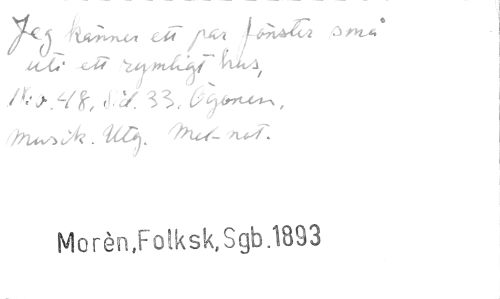 Jeg känner ett par fönster små
uti ett rymligt hus,
Nr. 48, Sid. 33. Ögonen,
musik. Utg. Mel-not.
Morèn,Folksk,Sgb.1893